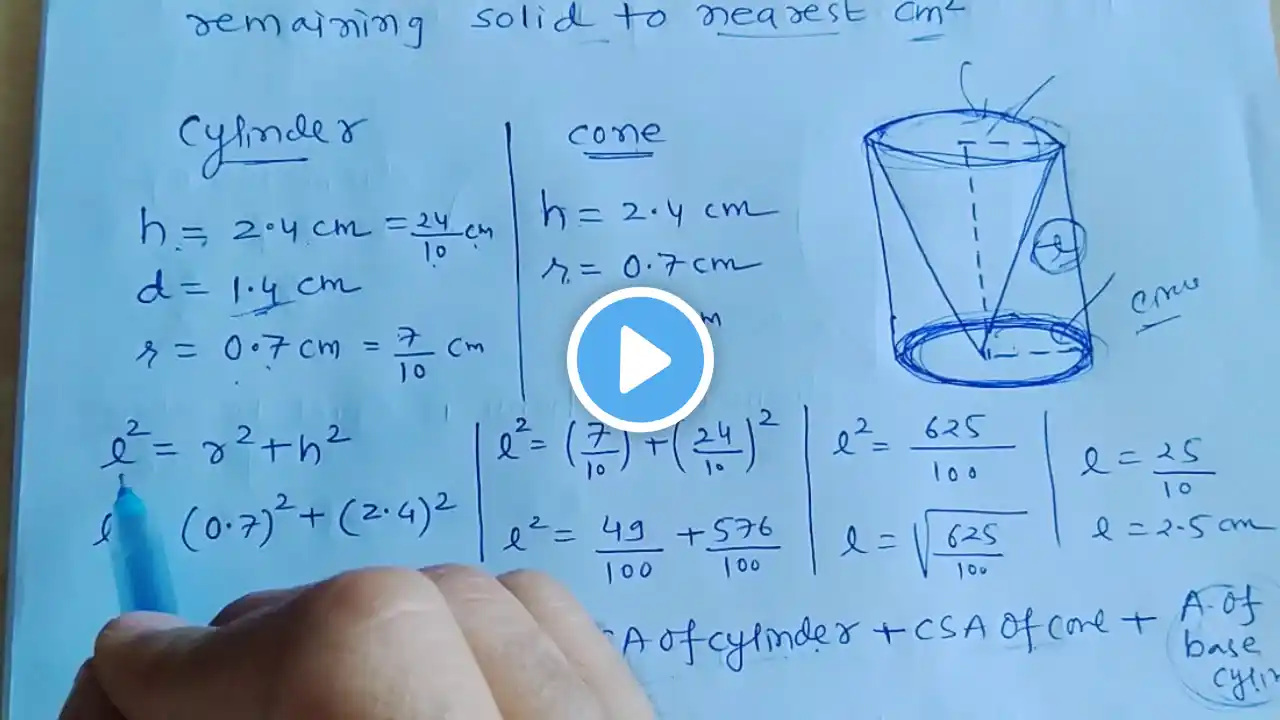 remaining solid to nearest cm²
Cylinder
h = 2.4 cm = 24/10 cm
d = 1.4 cm
r = 0.7 cm = 7/10 cm
cone
h = 2.4 cm
r = 0.7 cm
m
l
l² = r² + h²
l (0.7)² + (2.4)²
l² = (7/10) + (24/10)²
l² = 49/100 + 576/100
l² = 625/100
l = √625/100
l = 25/10
l = 2.5 cm
A of cylinder + CSA of cone + A. of
base